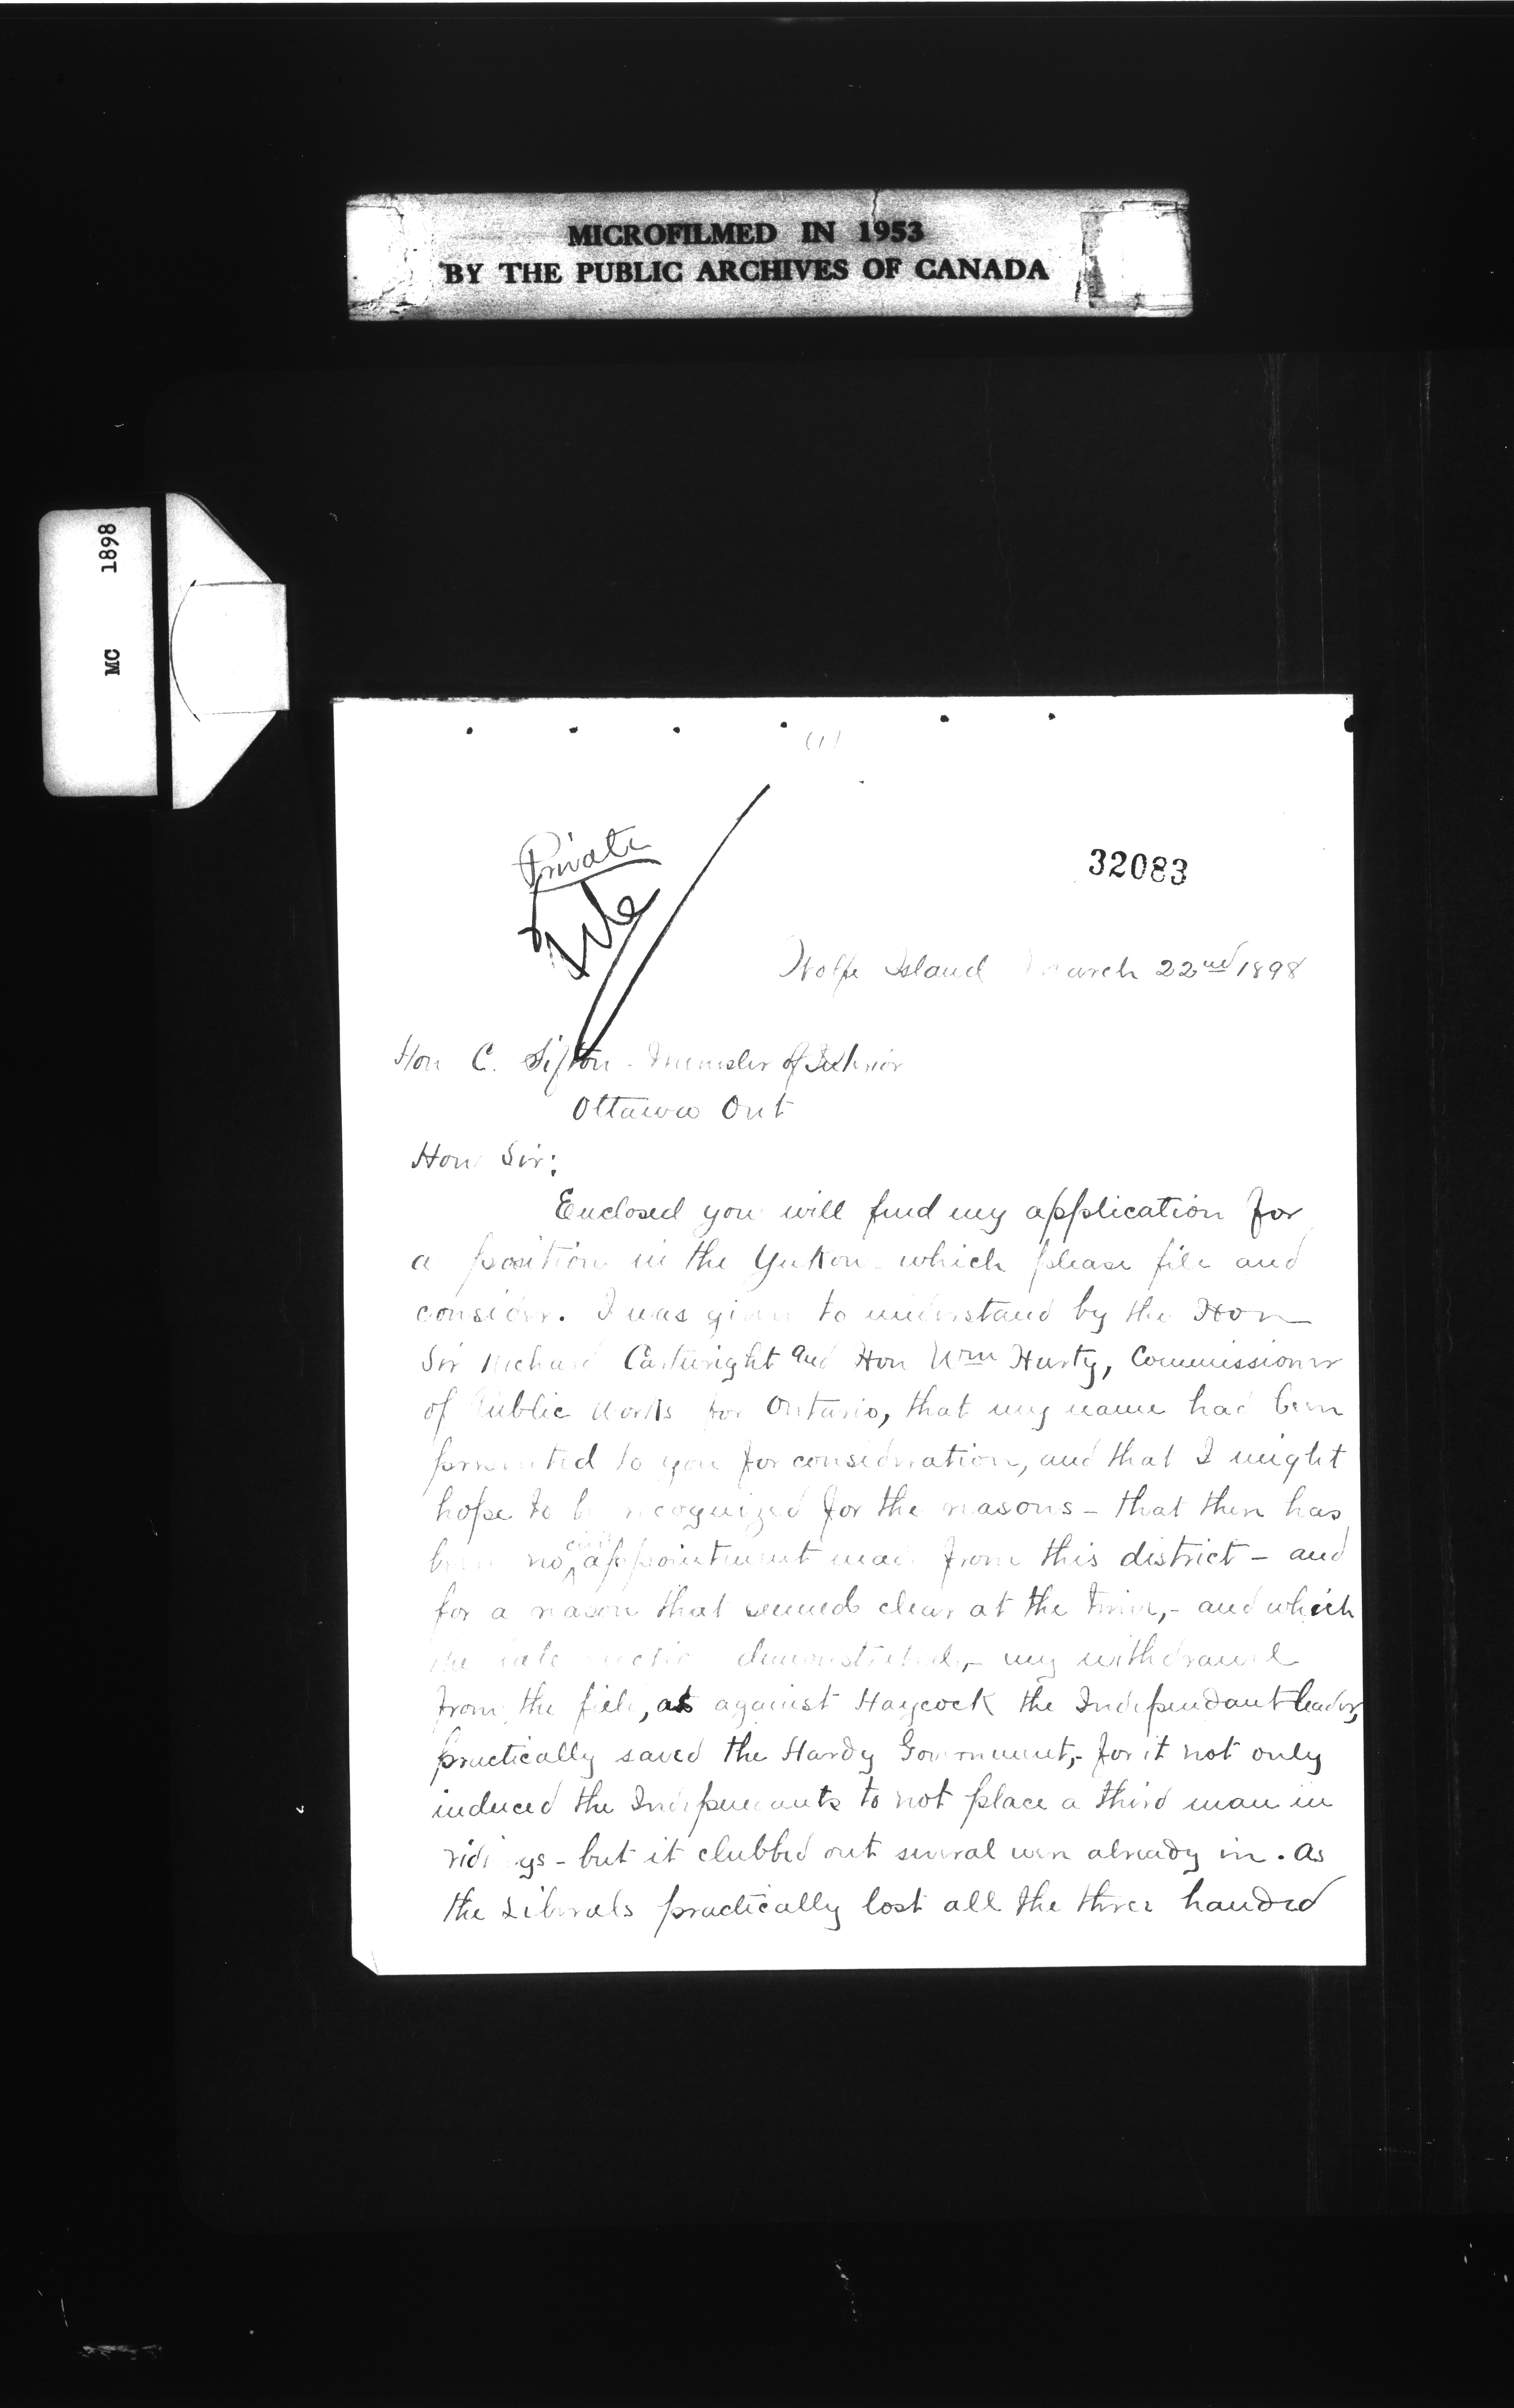 MICROFILMED IN 1953
BY THE PUBLIC ARCHIVES OF CANADA
MC 1898
(1)
Private
File
32083
Wolfe Island March 22nd 1898
Hon C. Sifton - Minister of Interior
Ottawa Ont
Hon Sir:
Enclosed you will find my application for
a position in the Yukon - which please file and
consider. I was given to understand by the Hon
Sir Richard Cartwright and Hon Wm Harty, Commissioner
of Public Works for Ontario, that my name had been
presented to you for consideration, and that I might
hope to be recognized for the reasons - that there has
been no civil appointment made from this district - and
for a reason that seemed clear at the time, - and which
the late election demonstrated, - my withdrawal
from the field, as against Haycock the Independant leader,
practically saved the Hardy Government, - for it not only
induced the Independants to not place a third man in
ridings - but it clubbed out several men already in. As
the Liberals practically lost all the three handed